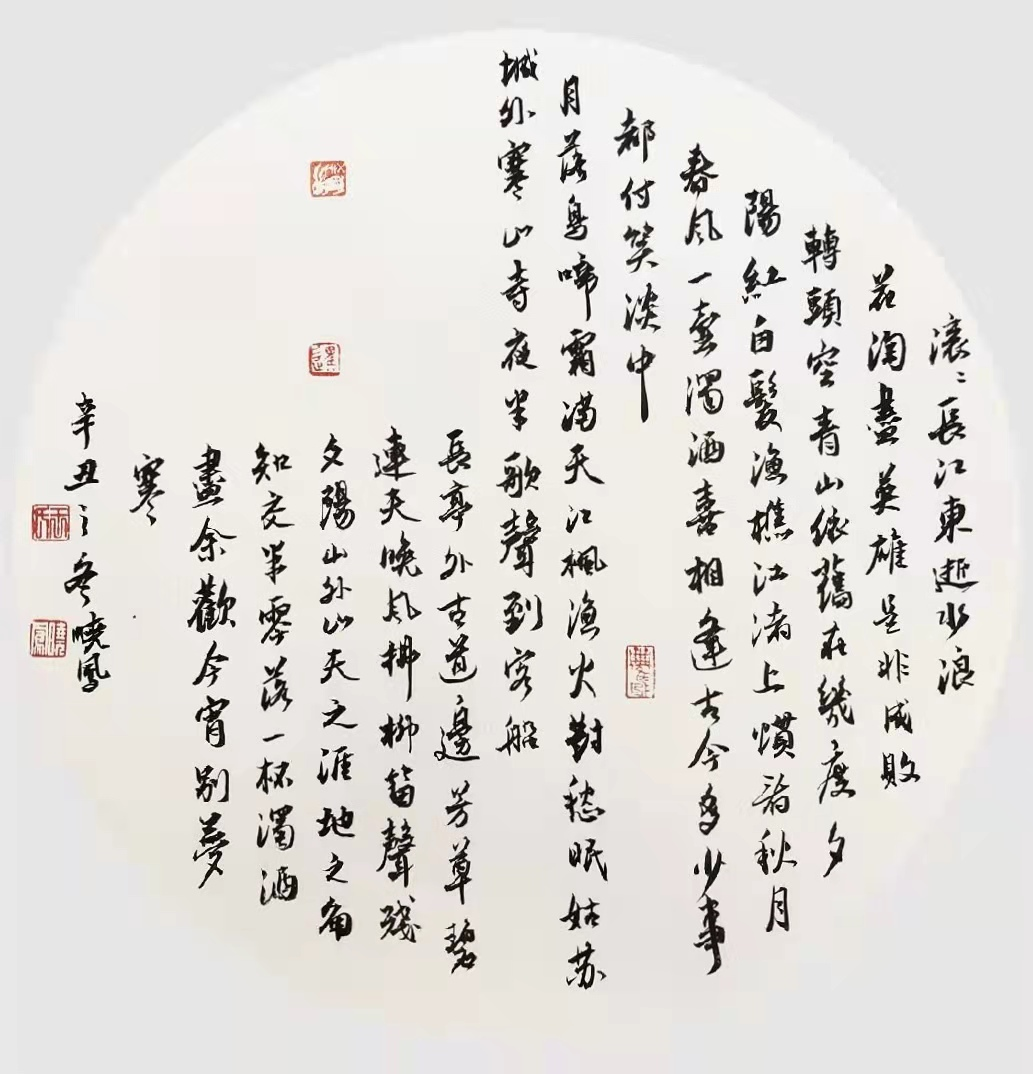 滾〻長江東逝水浪
花淘盡英雄是非成敗
轉頭空青山依舊在幾度夕
陽紅白髮漁樵江渚上慣看秋月
春风一壺濁酒喜相逢古今多少事
都付笑淡中
月落烏啼霜滿天江楓漁火對愁眠姑苏
城外寒山寺夜半歌聲到客船
長亭外古道邊芳草碧
連天晚风拂柳笛聲殘
夕陽山外山天之涯地之角
知交半零落一杯濁酒
盡余歡今宵别夢
寒
辛丑之冬曉鳳
曉鳳